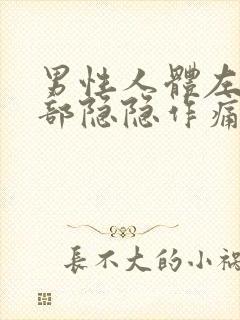 男性人體左
部隐隐作痛
長不大的小祸